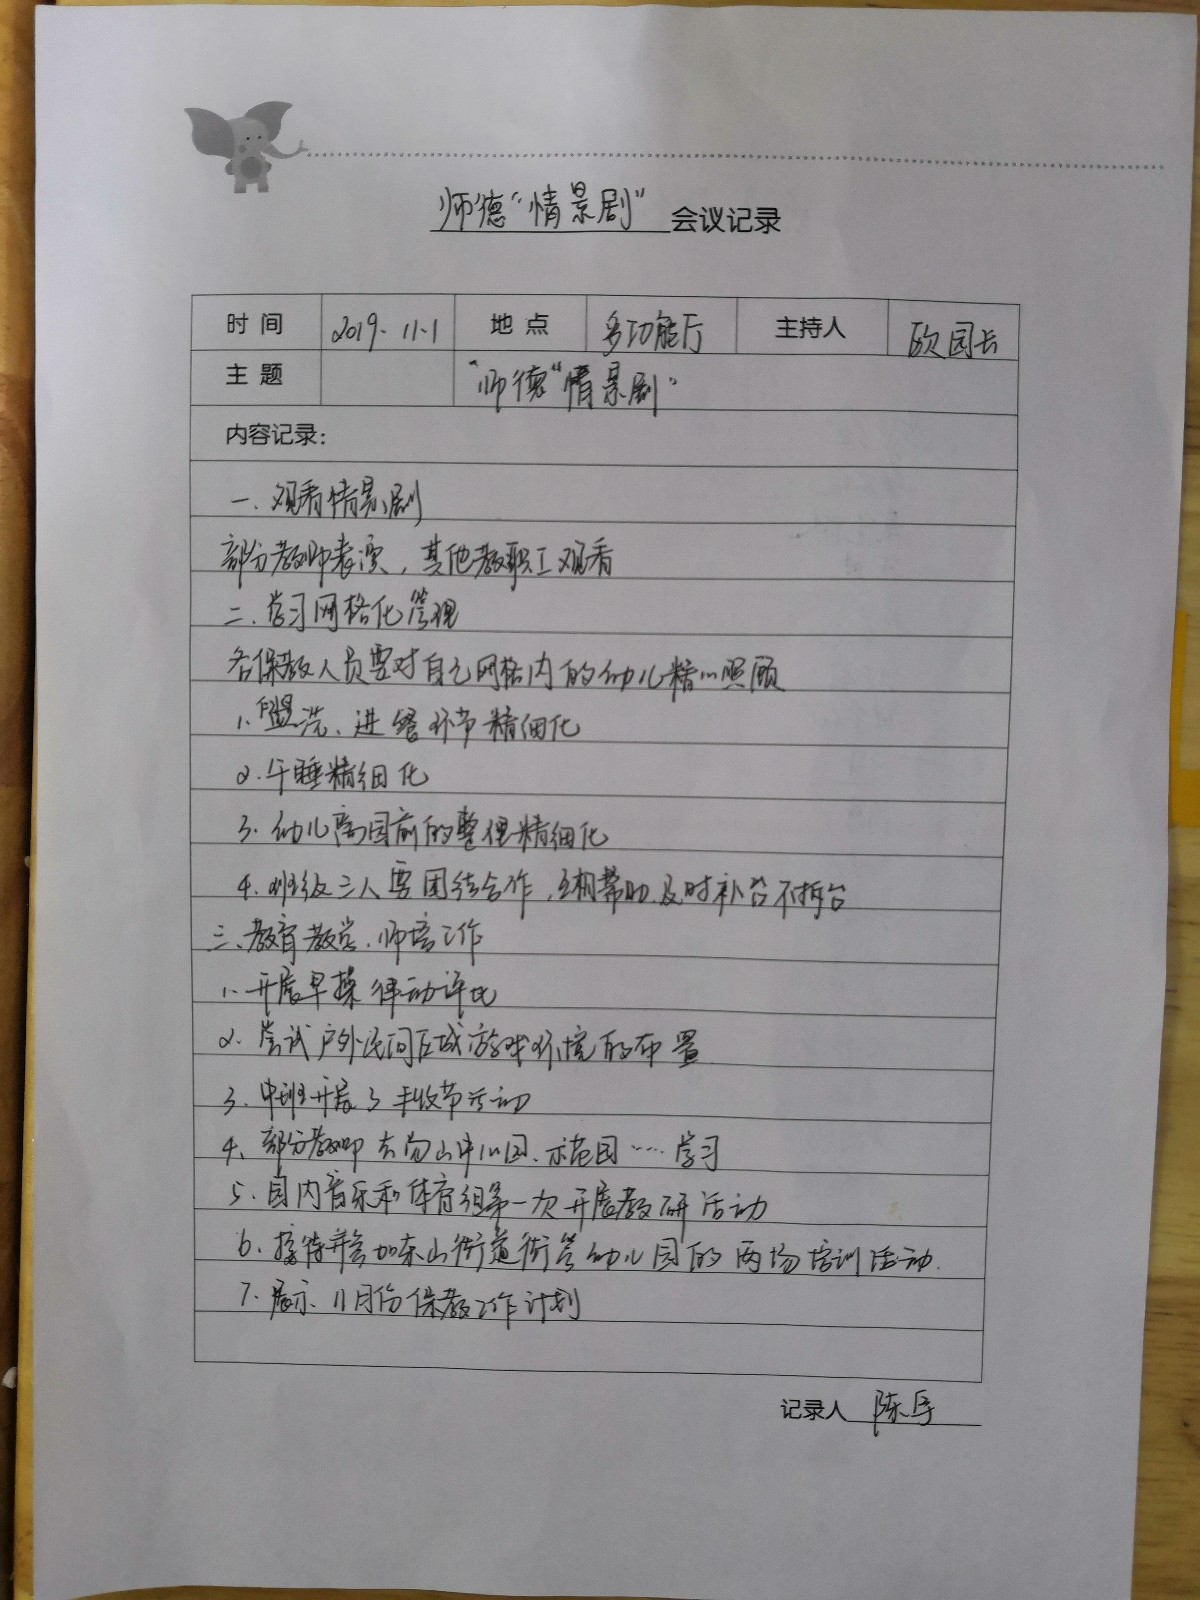 师德“情景剧” 会议记录
时间 2019.11.1 地点 多功能厅 主持人 欧园长
主题 “师德“情景剧”
内容记录：
一、观看情景剧
部分教师表演，其他教职工观看
二、学习网格化管理
各保教人员要对自己网格内的幼儿精心照顾
1、盥洗、进餐环节精细化
2.午睡精细化
3.幼儿离园前的整理精细化
4.班级三人要团结合作，互相帮助、及时补台不拆台
三、教育教学、师培工作
1.开展早操律动评比
2.尝试户外民间区域游戏环境的布置
3.中班开展了丰收节活动
4、部分教师去 山中心园、示范园……学习
5.园内音乐和体育组第一次开展教研活动
6.接待并参加东山街道街管幼儿园的两场培训活动.
7.展示11月份保教工作计划
记录人 陈